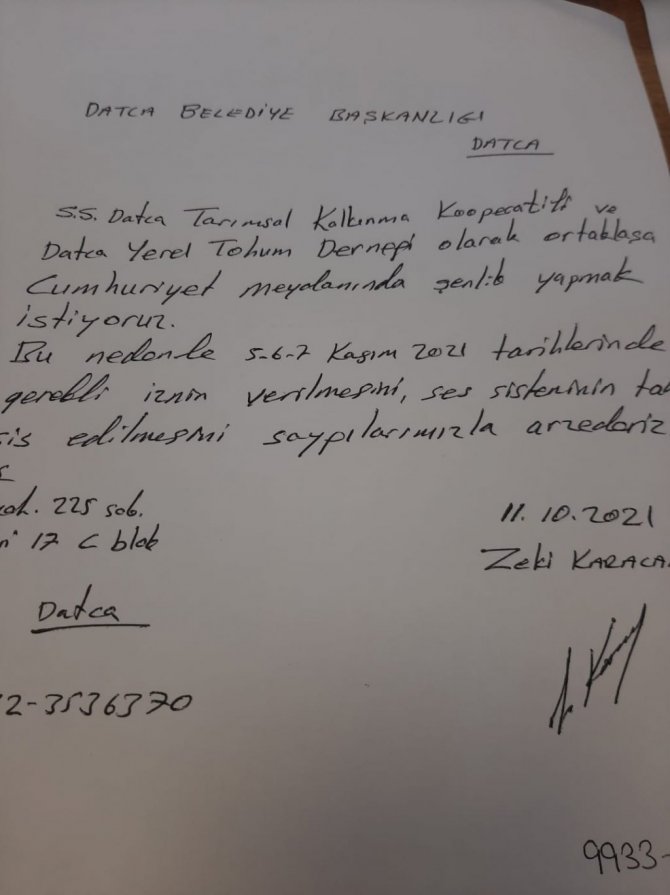 DATCA BELEDİYE BAŞKANLIĞI
DATCA
S.S. Datca Tarımsal Kalkınma Kooperatifi ve
Datca Yerel Tohum Derneği olarak ortaklaşa
Cumhuriyet meydanında şenlik yapmak
istiyoruz.
Bu nedenle 5-6-7 Kasım 2021 tarihlerinde
gerekli iznin verilmesini, ses sisteminin tah
sis edilmesini saygılarımızla arzederiz
11.10.2021
Zeki KARACA
225 sok.
17 C blok
Datca
2-3536370
9933-